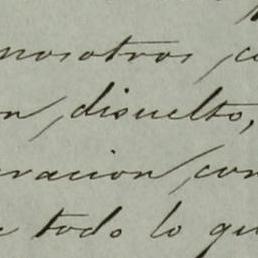 nosotros, co
n, disuelto,
racion, con
todo lo qu